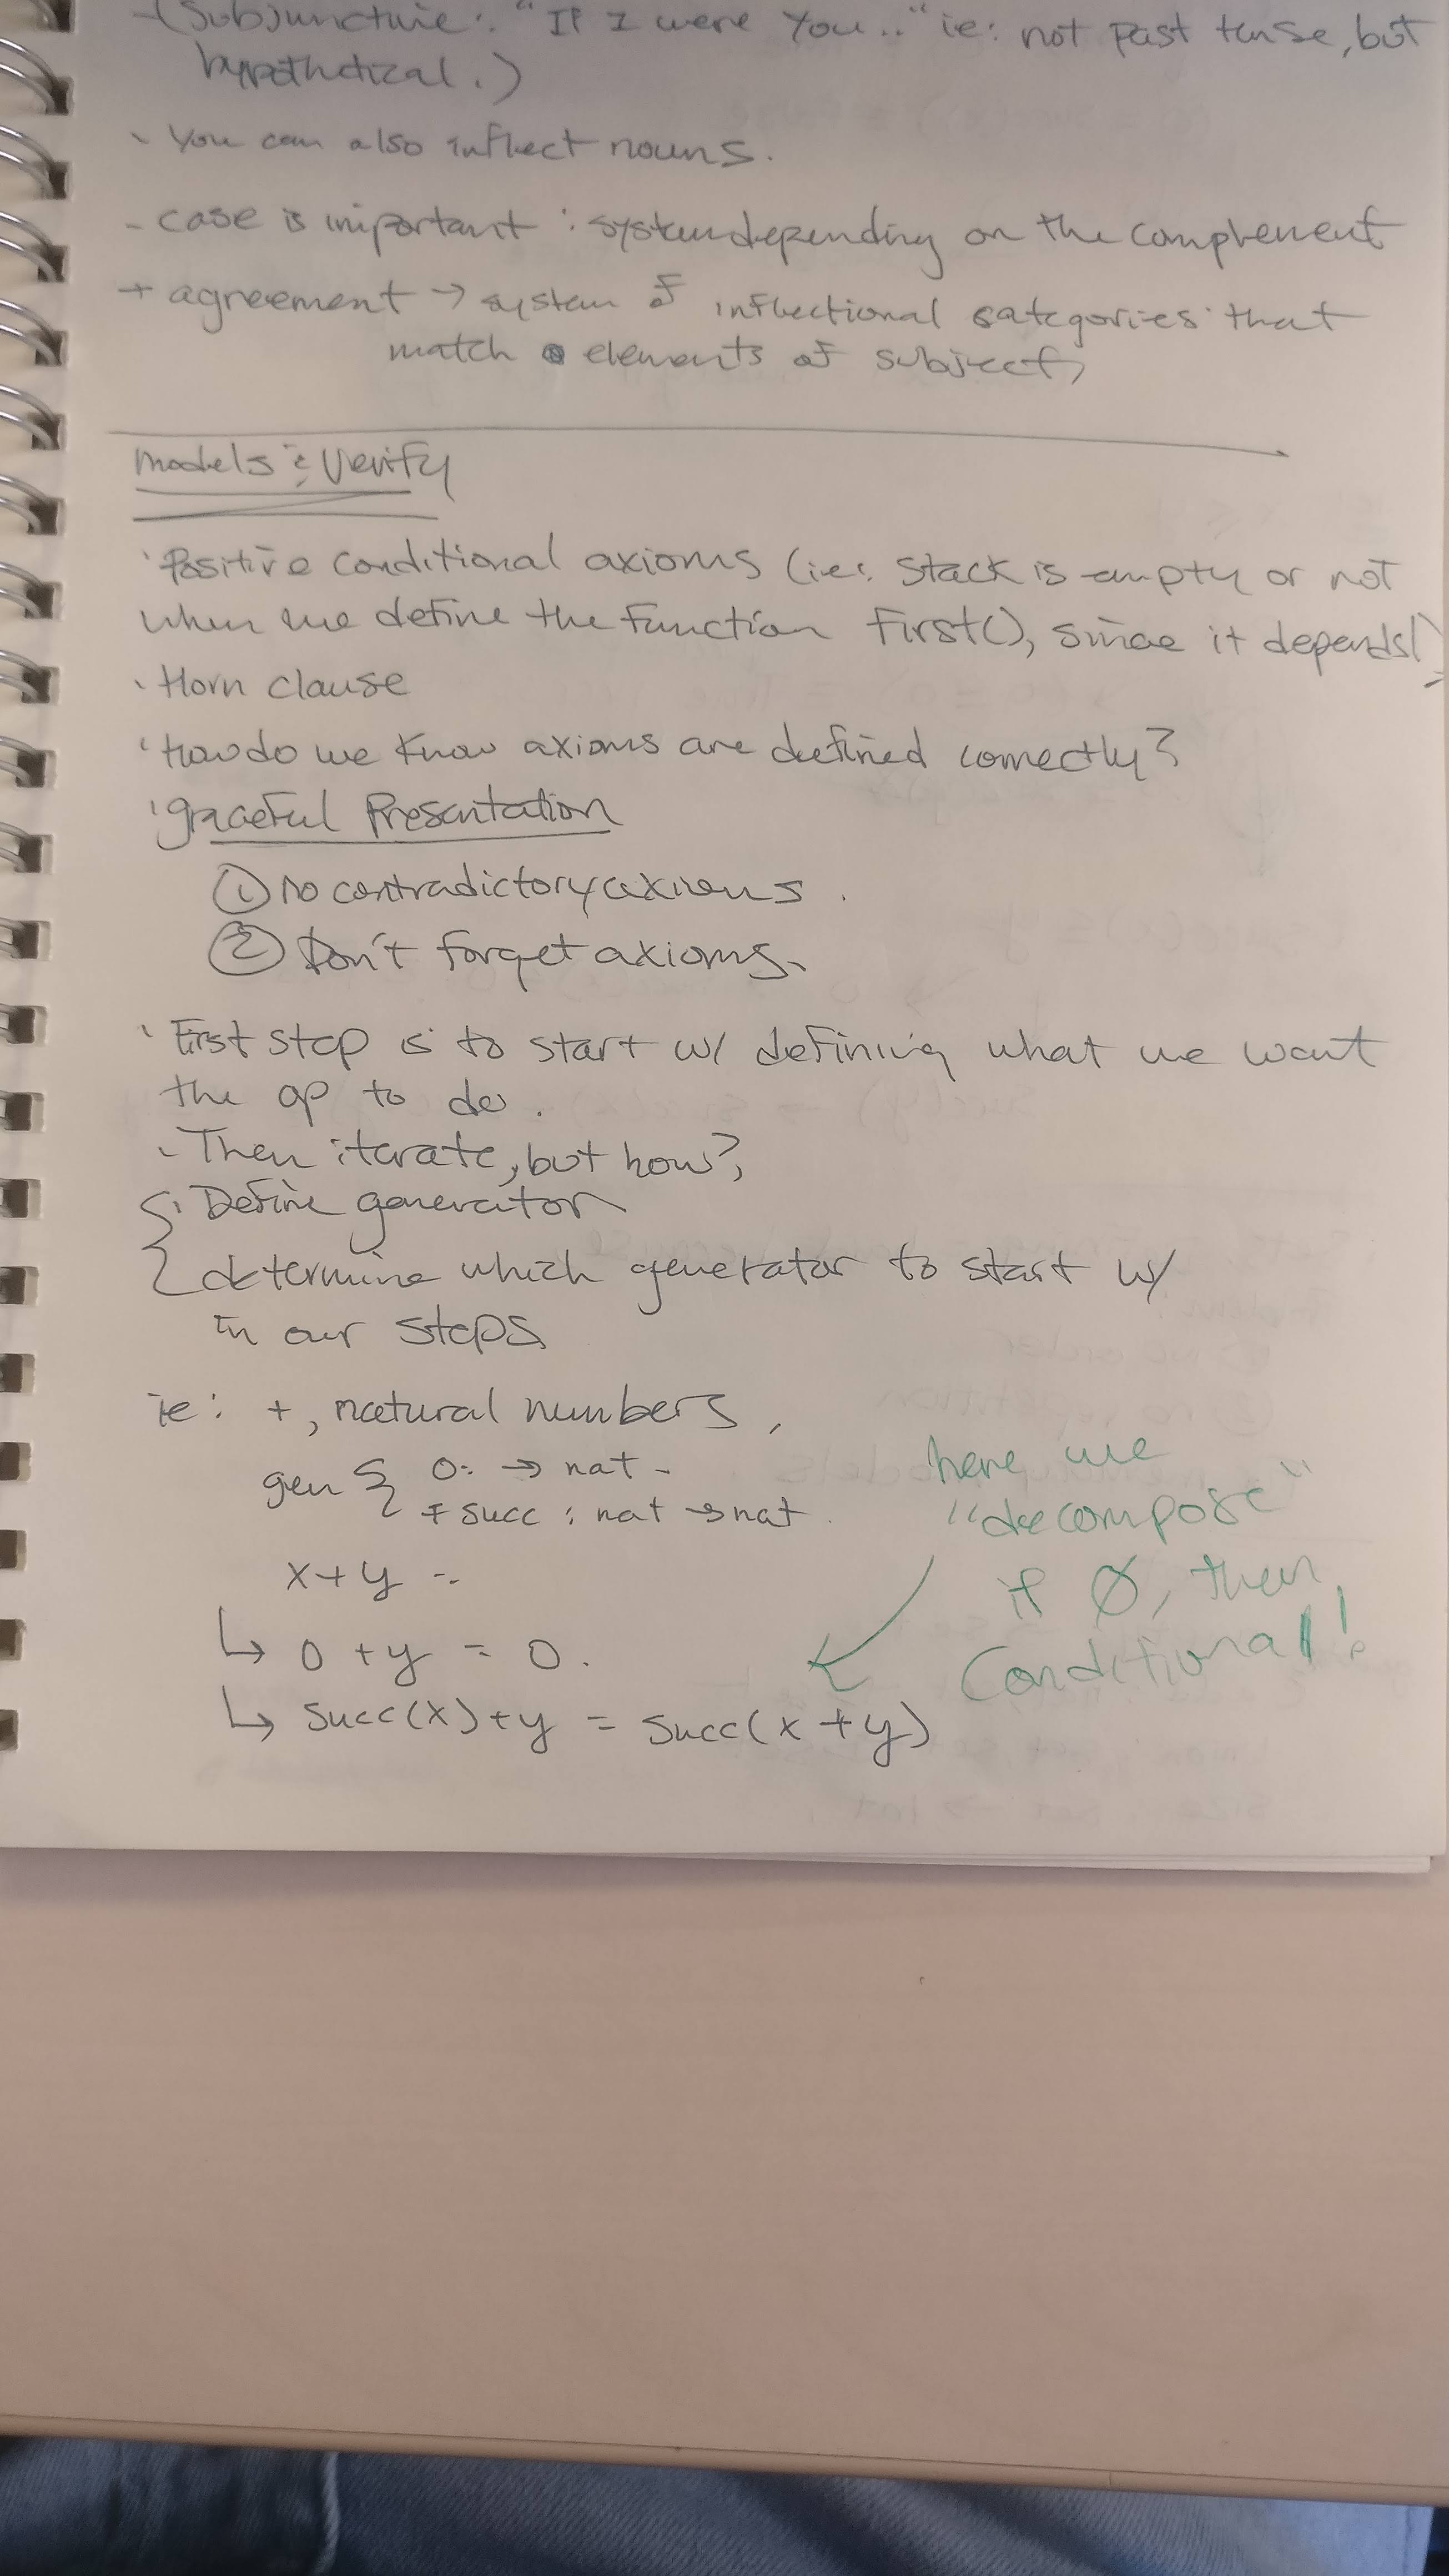 -(Subjunctive: "If I were you.." ie: not past tense, but
hypothetical.)
- You can also inflect nouns.
- case is important : system depending on the complement
+ agreement → system of inflectional categories that
match elements of subject,
models & Verify
· Positive conditional axioms (ie: stack is empty or not
when we define the function first(), since it depends!)
· Horn clause
· How do we know axioms are defined correctly?
· graceful Presentation
① no contradictory axioms.
② Don't forget axioms.
· First step is to start w/ defining what we want
the op to do.
- Then iterate, but how?,
{· Define generator
determine which generator to start w/
in our steps
ie: +, natural numbers,
gen { 0: → nat -
succ : nat → nat.
here we
"decompose"
if ∅, then
Conditional!
x+y =
↳ 0 + y = 0.
↳ succ(x)+y = succ(x+y)